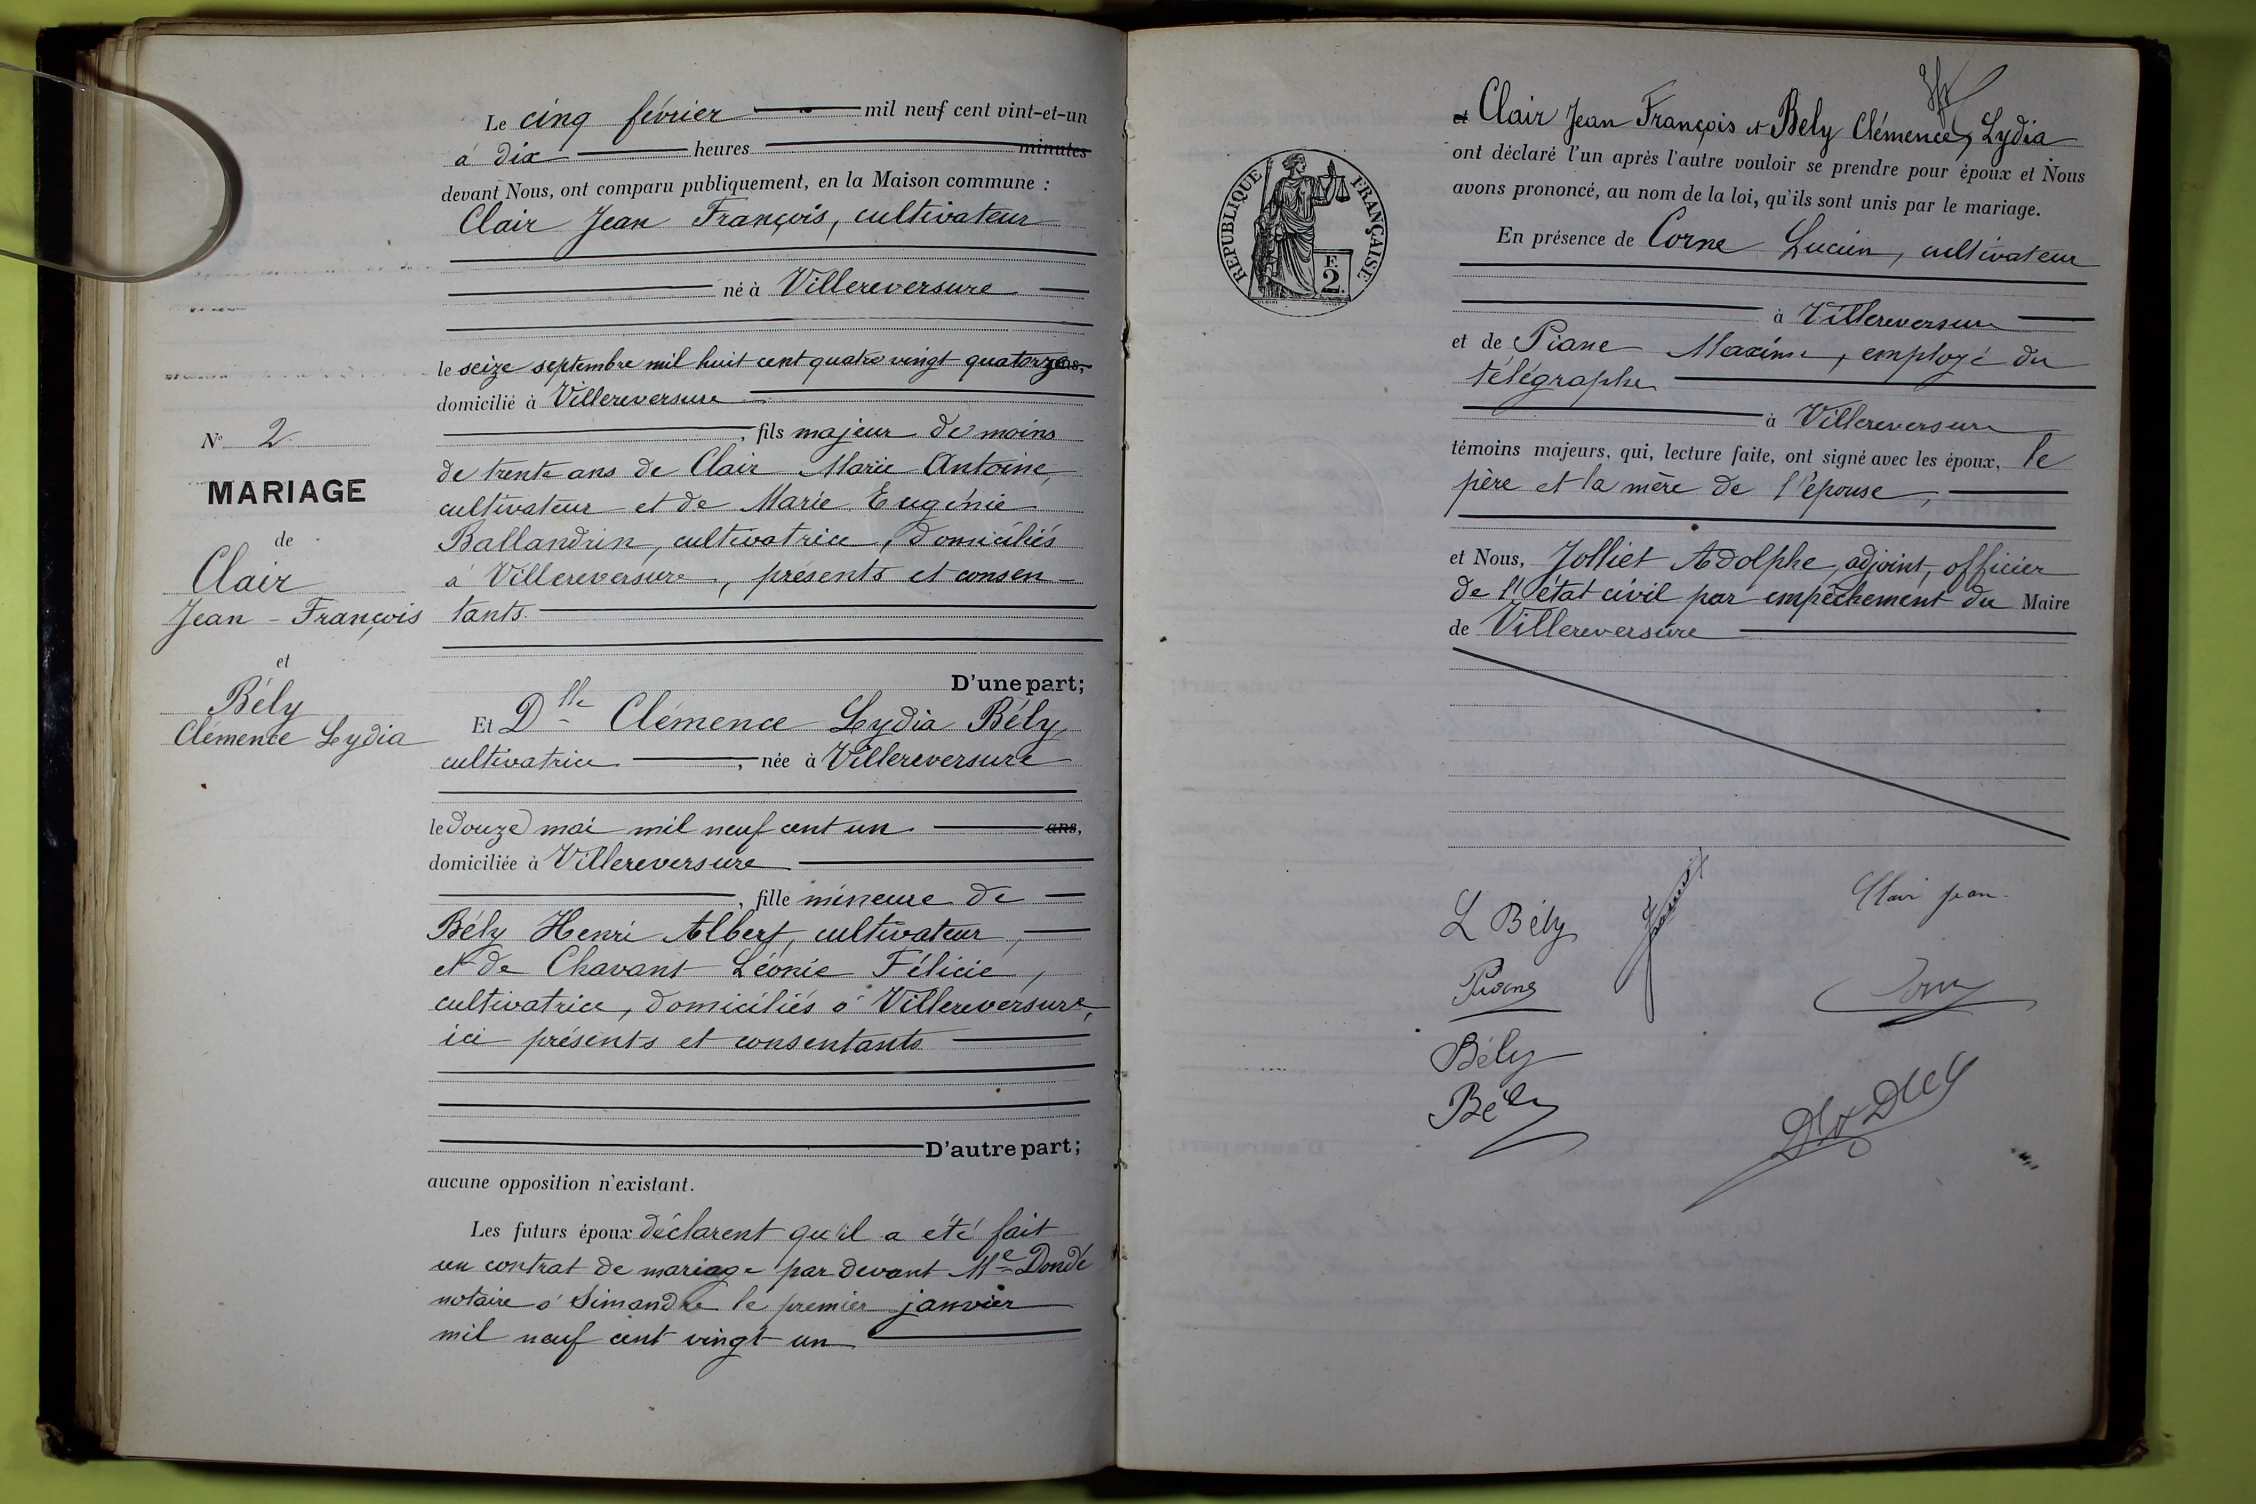 Le cinq février mil neuf cent vint-et-un
à dix heures minutes
devant Nous, ont comparu publiquement, en la Maison commune :
Clair Jean François, cultivateur
né à Villereversure
le seize septembre mil huit cent quatre vingt quatorze ans,
domicilié à Villereversure
, fils majeur de moins
de trente ans de Clair Marie Antoine,
cultivateur et de Marie Eugénie
Ballandrin, cultivatrice, domiciliés
à Villereversure, présents et consen-
tants.
D'une part;
Et Dlle Clémence Lydia Bély,
cultivatrice, née à Villereversure
le douze mai mil neuf cent un ans,
domiciliée à Villereversure
, fille mineure de
Bély Henri Albert, cultivateur,
et de Chavant Léonie Félicie,
cultivatrice, domiciliés à Villereversure,
ici présents et consentants
D'autre part;
aucune opposition n'existant.
Les futurs époux déclarent qu'il a été fait
un contrat de mariage par devant Me Dondé
notaire à Simandre le premier janvier
mil neuf cent vingt un
N° 2
MARIAGE
de
Clair
Jean-François
et
Bély
Clémence Lydia
RÉPUBLIQUE FRANÇAISE
F
2.
et Clair Jean François et Bely Clémence, Lydia
ont déclaré l'un après l'autre vouloir se prendre pour époux et Nous
avons prononcé, au nom de la loi, qu'ils sont unis par le mariage.
En présence de Corne Lucien, cultivateur
à Villereversure
et de Piane Maxime, employé du
télégraphe
à Villereversure
témoins majeurs, qui, lecture faite, ont signé avec les époux, le
père et la mère de l'épouse,
et Nous, Jolliet Adolphe, adjoint, officier
de l'état civil par empêchement du Maire
de Villereversure
L Bély
Clair Jean
Piane
Bély
Bély